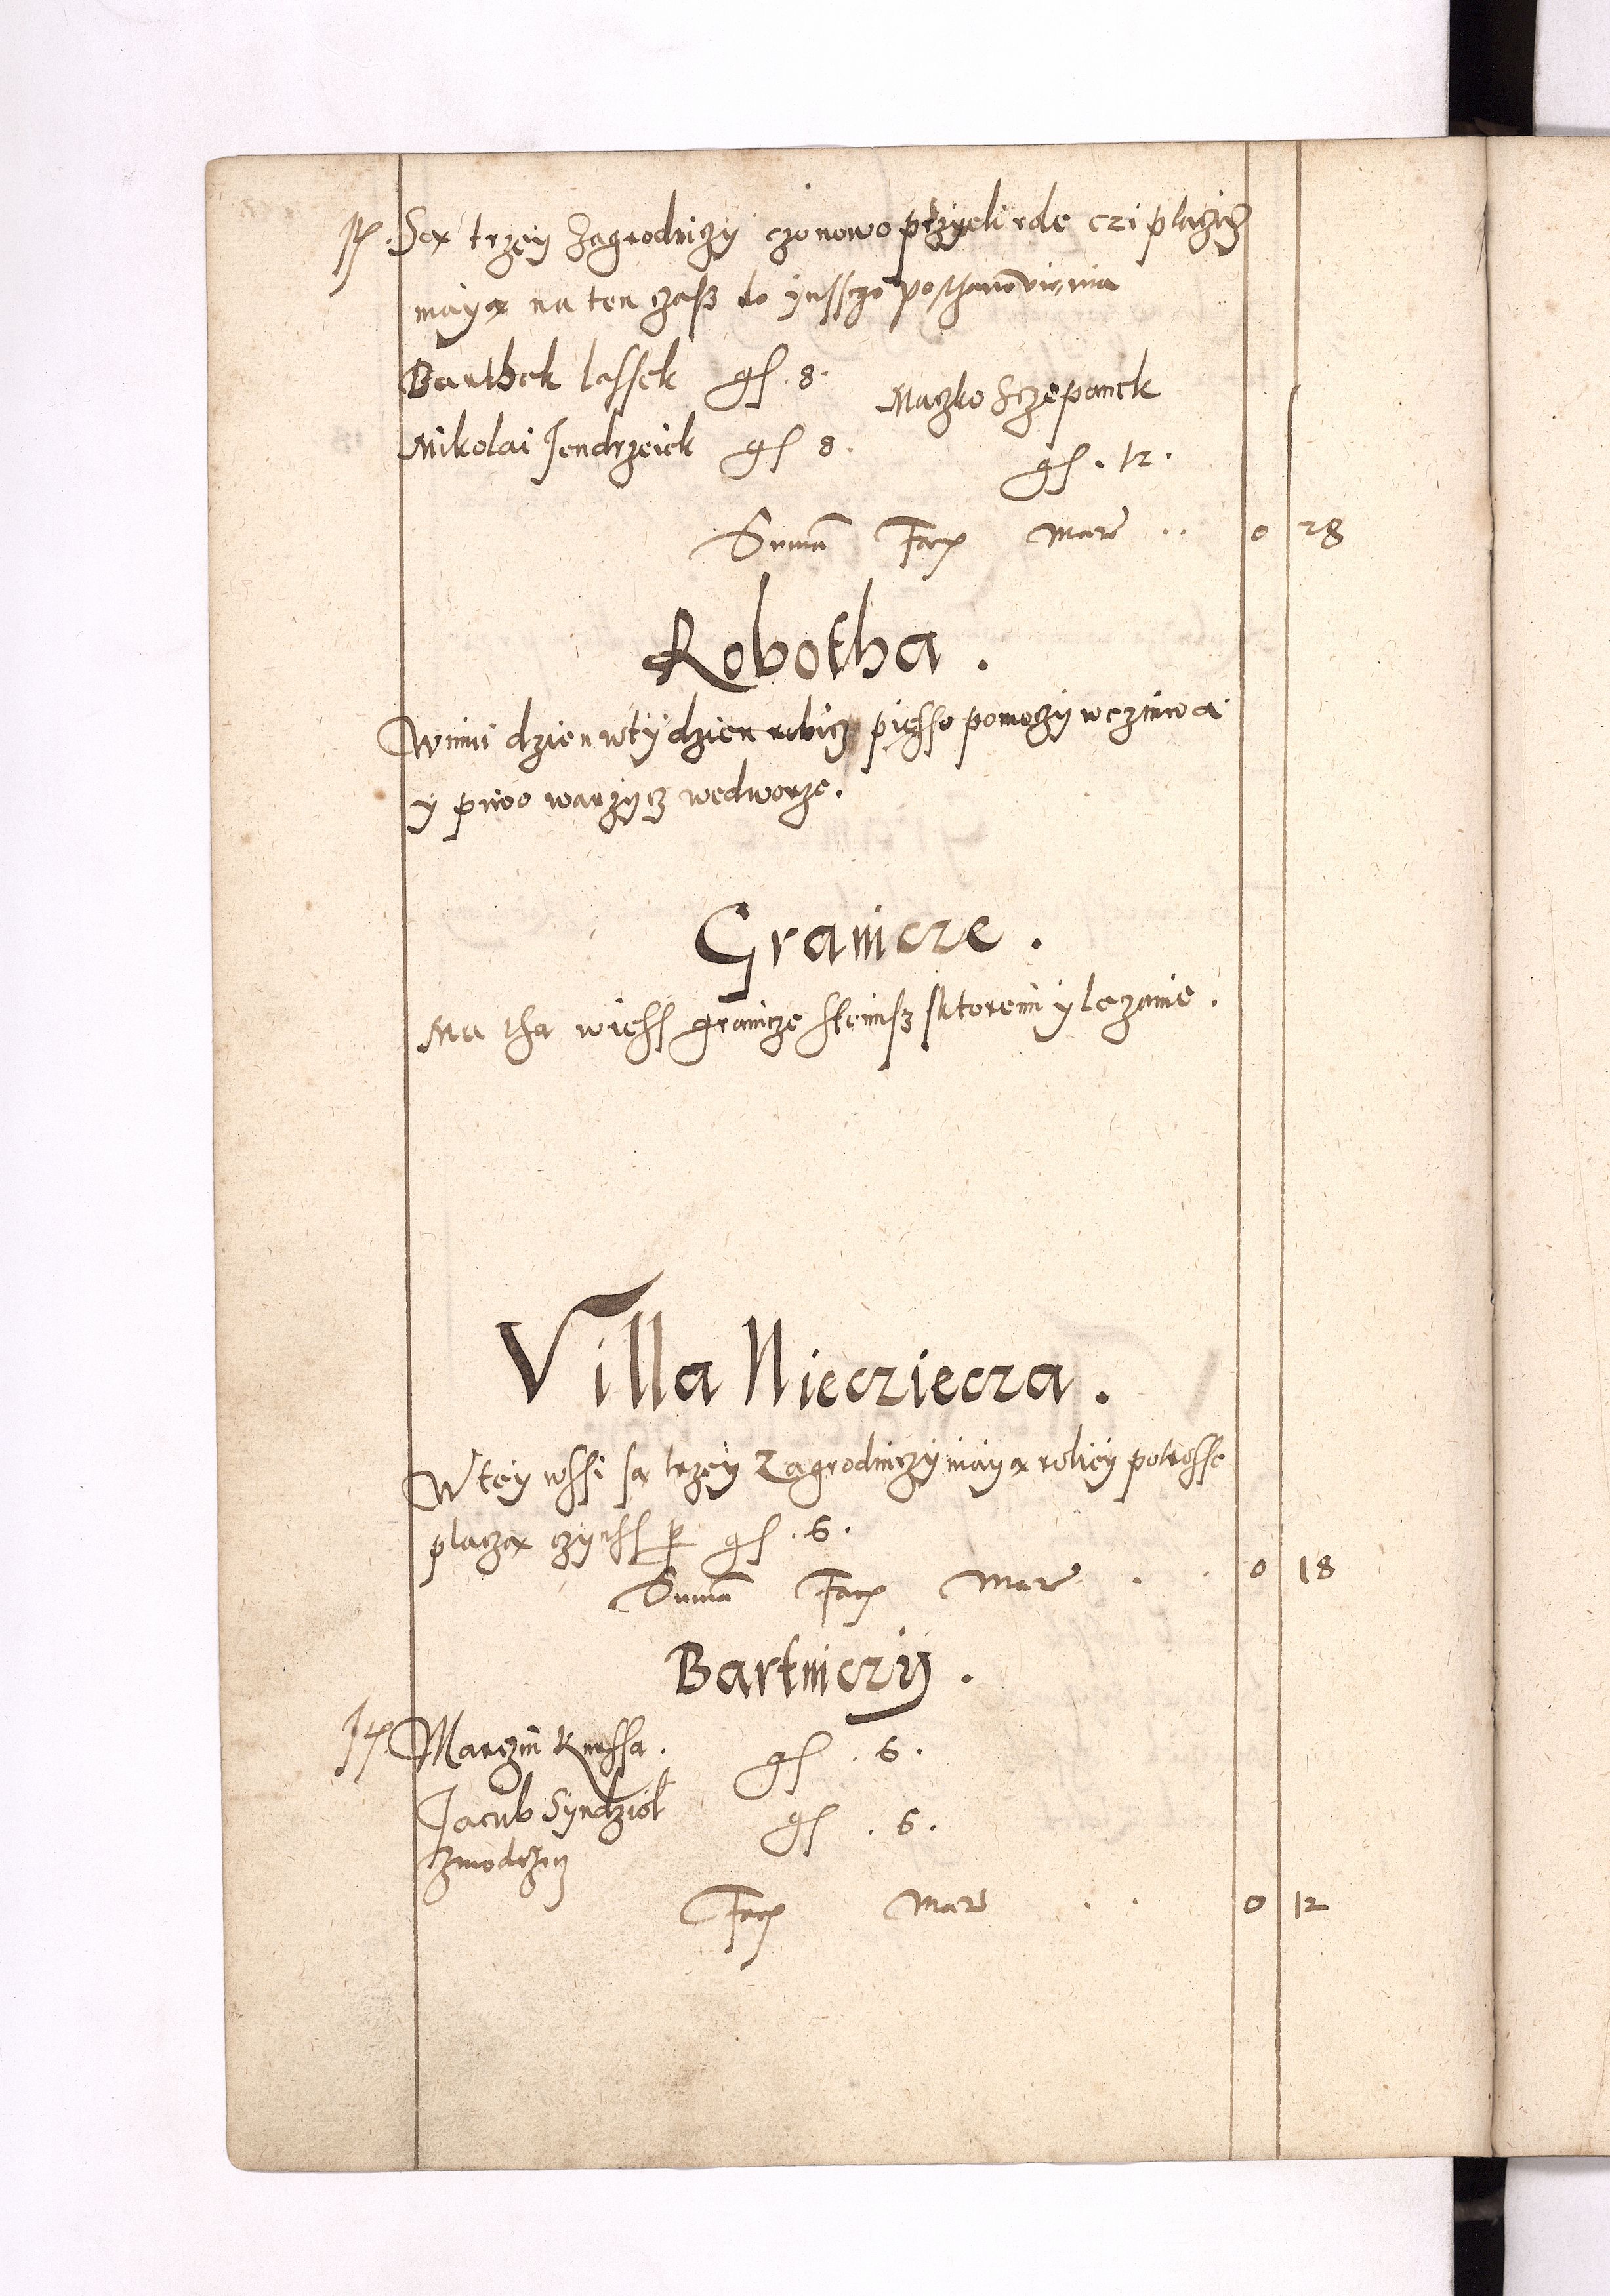 It. Sąx trzey Zagrodniczy czo nowo przyęli role czi placzicz
mayą na ten czasz do ynssego posthanowienia
Barthek lessek gſ. 8.
Maczko Sczepanek
Nikolai Jendrzeiek gſ 8.
gſ. 12.
Suma Facz Mar .. 0 28
Robotha.
Winni dzien w tydzien robicz piesso pomoczy w czniwa
y piwo warzycz wedworze.
Granicze.
Ma tha wiess granicze s temisz s ktoremi y lezanie.
Villa Niecziecza.
W tey wssi są trzey Zagrodniczy mayą roliey potrosse
placzą czynss per gſ. 6.
Suma Facz Mar . . 0 18
Bartniczy.
It. Marczin Kurssa. gſ. 6.
Jacub Syndziol gſ. 6.
Facz Mar . . 0 12